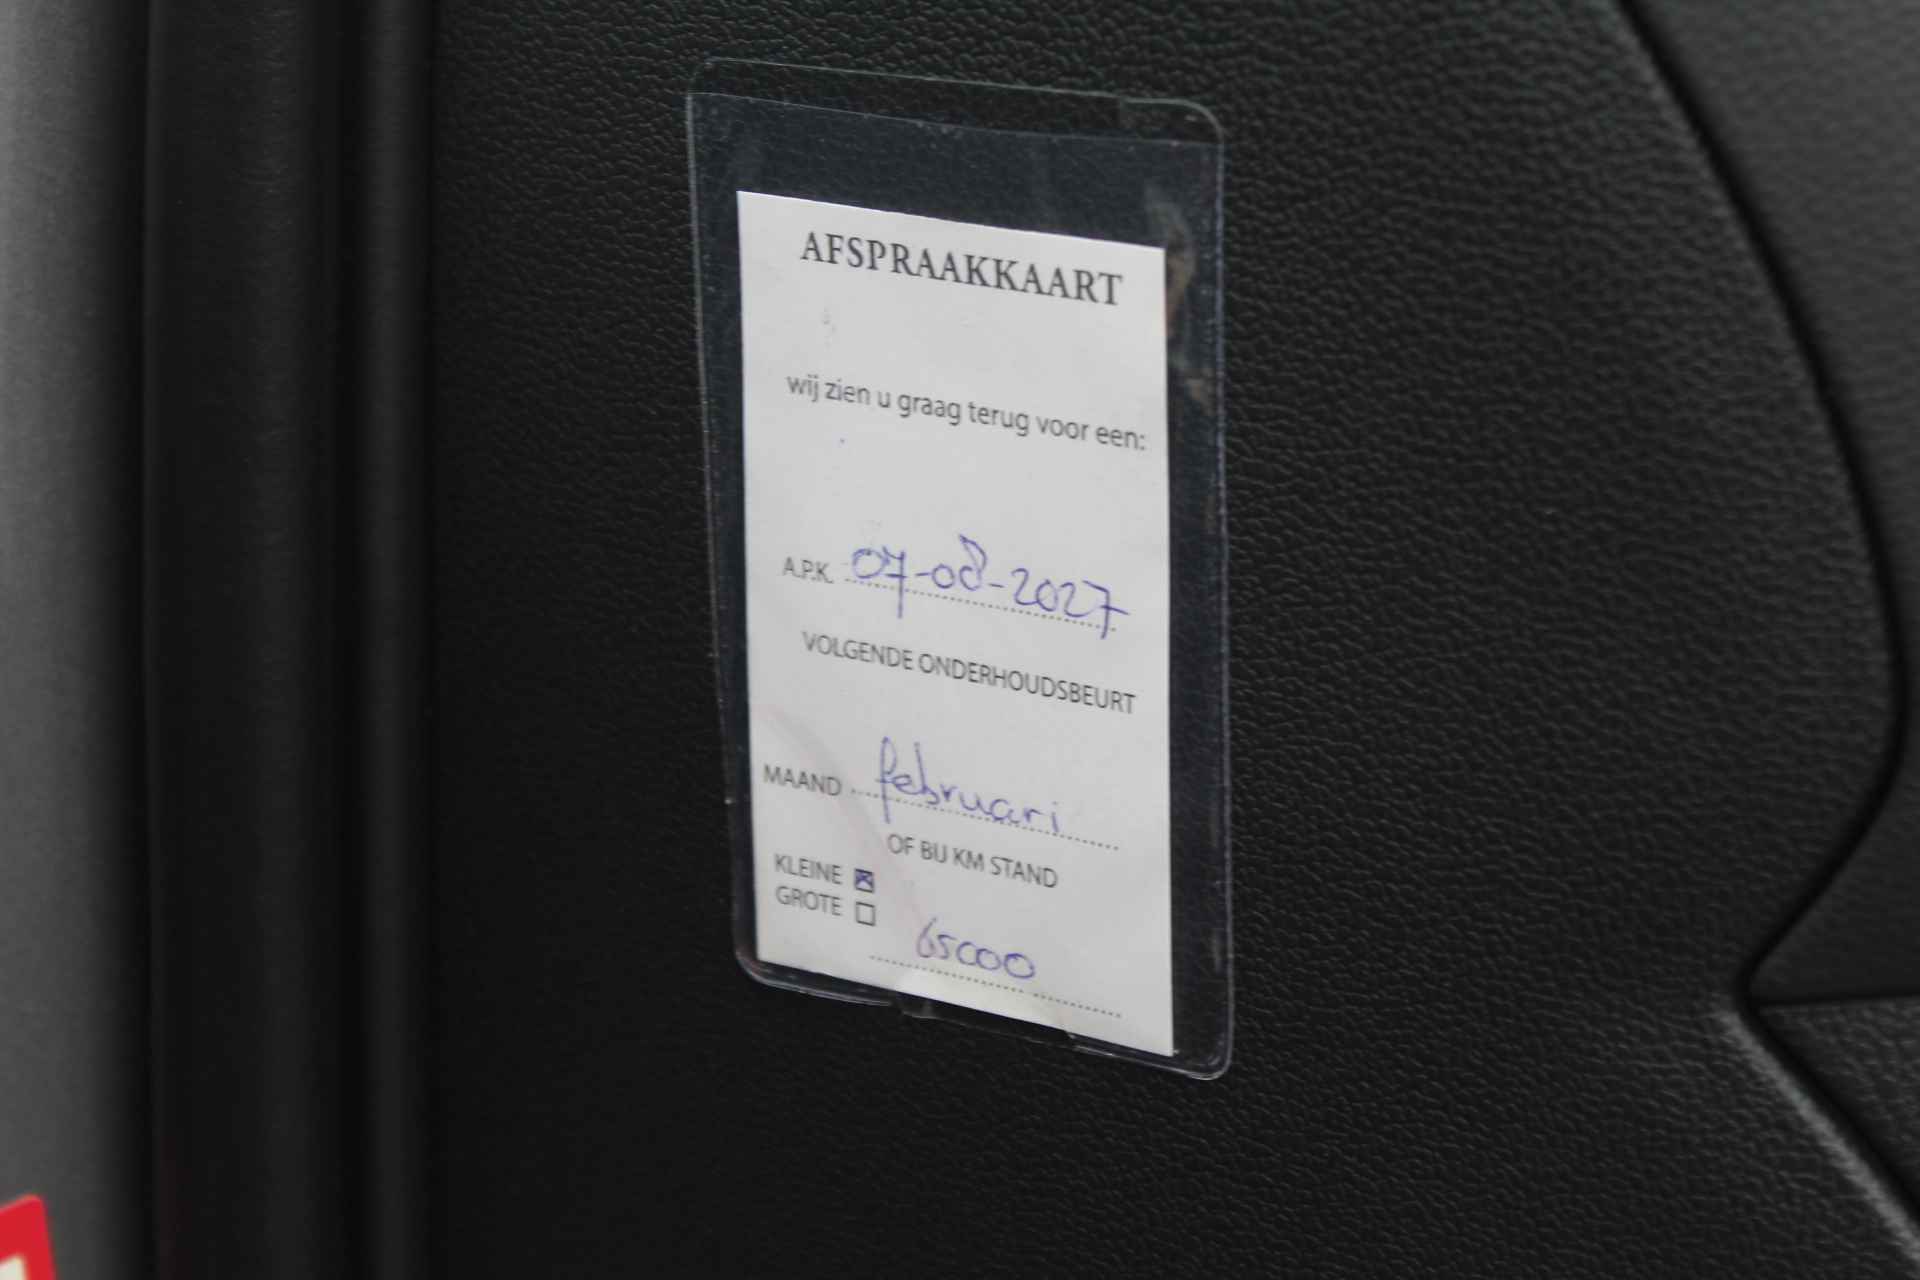 AFSPRAAKKAART
wij zien u graag terug voor een:
A.P.K. 07-08-2027
VOLGENDE ONDERHOUDSBEURT
MAAND februari
OF BIJ KM STAND
KLEINE ☒
GROTE ☐
65000